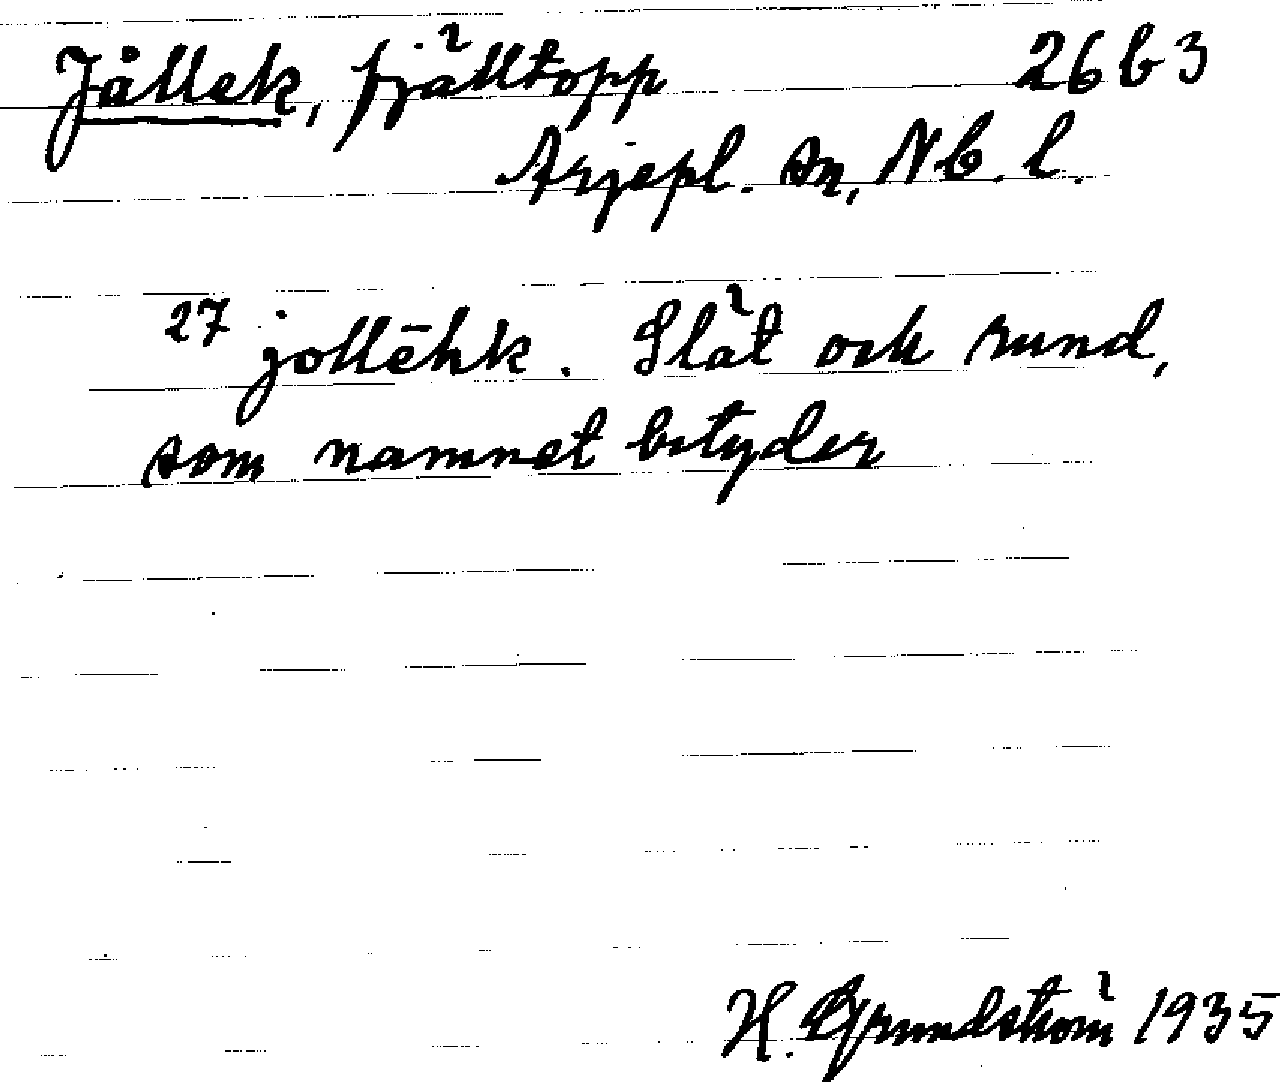 Jållek, fjälltopp 26 b 3
Arjepl. sn, Nb. l.
27 jollēhk. Slät och rund,
som namnet betyder
H. Grundström 1935